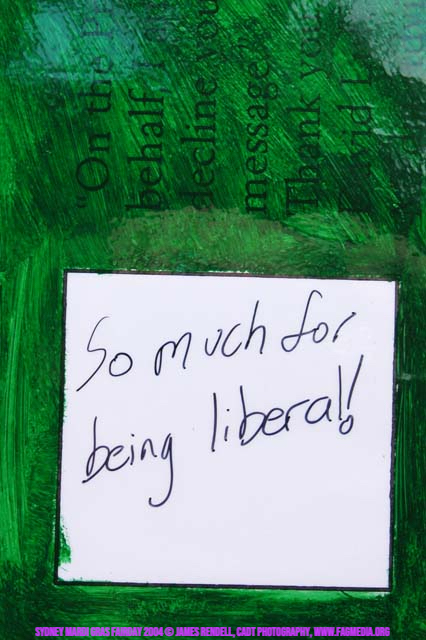 "On the
behalf, I
decline you
message?
Thank you
vid
So much for
being liberal!
SYDNEY MARDI GRAS FAIRDAY 2004 © JAMES RENDELL, CADT PHOTOGRAPHY, WWW.FAGMEDIA.ORG